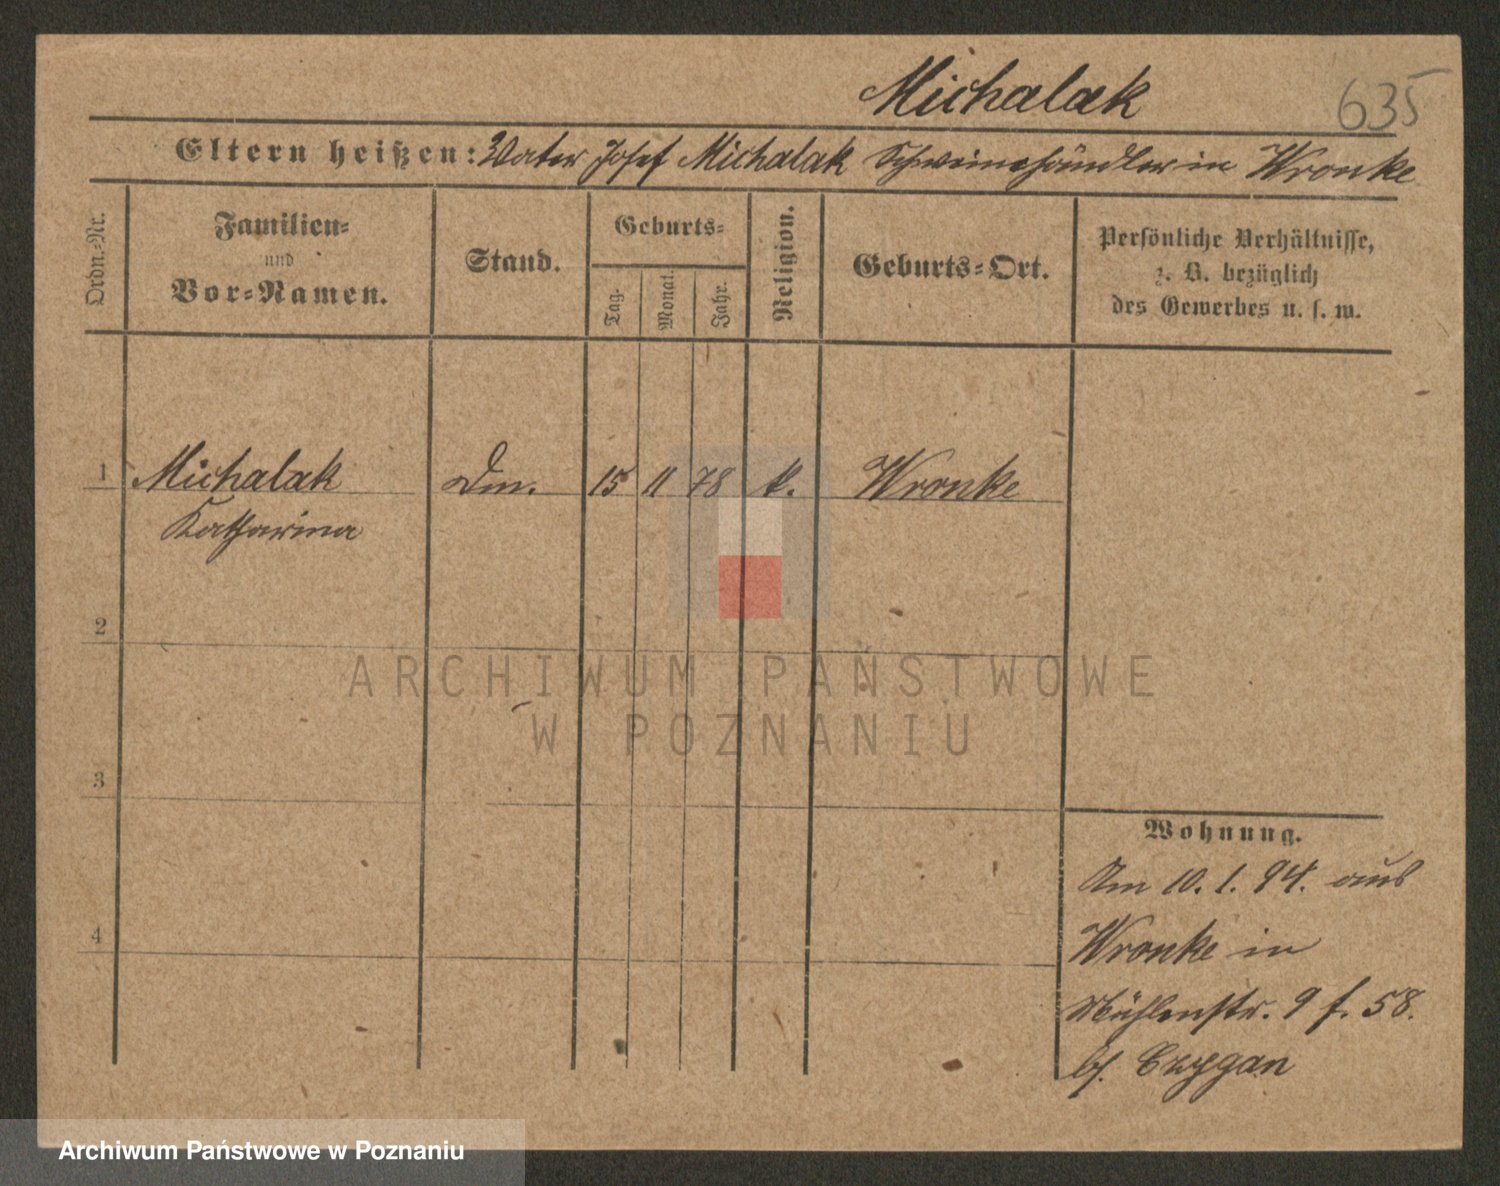 Michalak
635
Eltern heißen: Vater Josef Michalak Schweinehändler in Wronke
Ordn.-Nr.
Familien-
und
Vor-Namen.
Stand.
Geburts-
Tag.
Monat.
Jahr.
Religion.
Geburts-Ort.
Persönliche Verhältnisse,
z. B. bezüglich
des Gewerbes u. s. w.
1 Michalak 15 11 78 k. Wronke
Katharina
2
ARCHIWUM PAŃSTWOWE
W POZNANIU
3
Wohnung.
Am 10. 1. 94. aus
4
Wronke in
Mühlenstr. 9 f. 58.
b/. Czygan
Archiwum Państwowe w Poznaniu